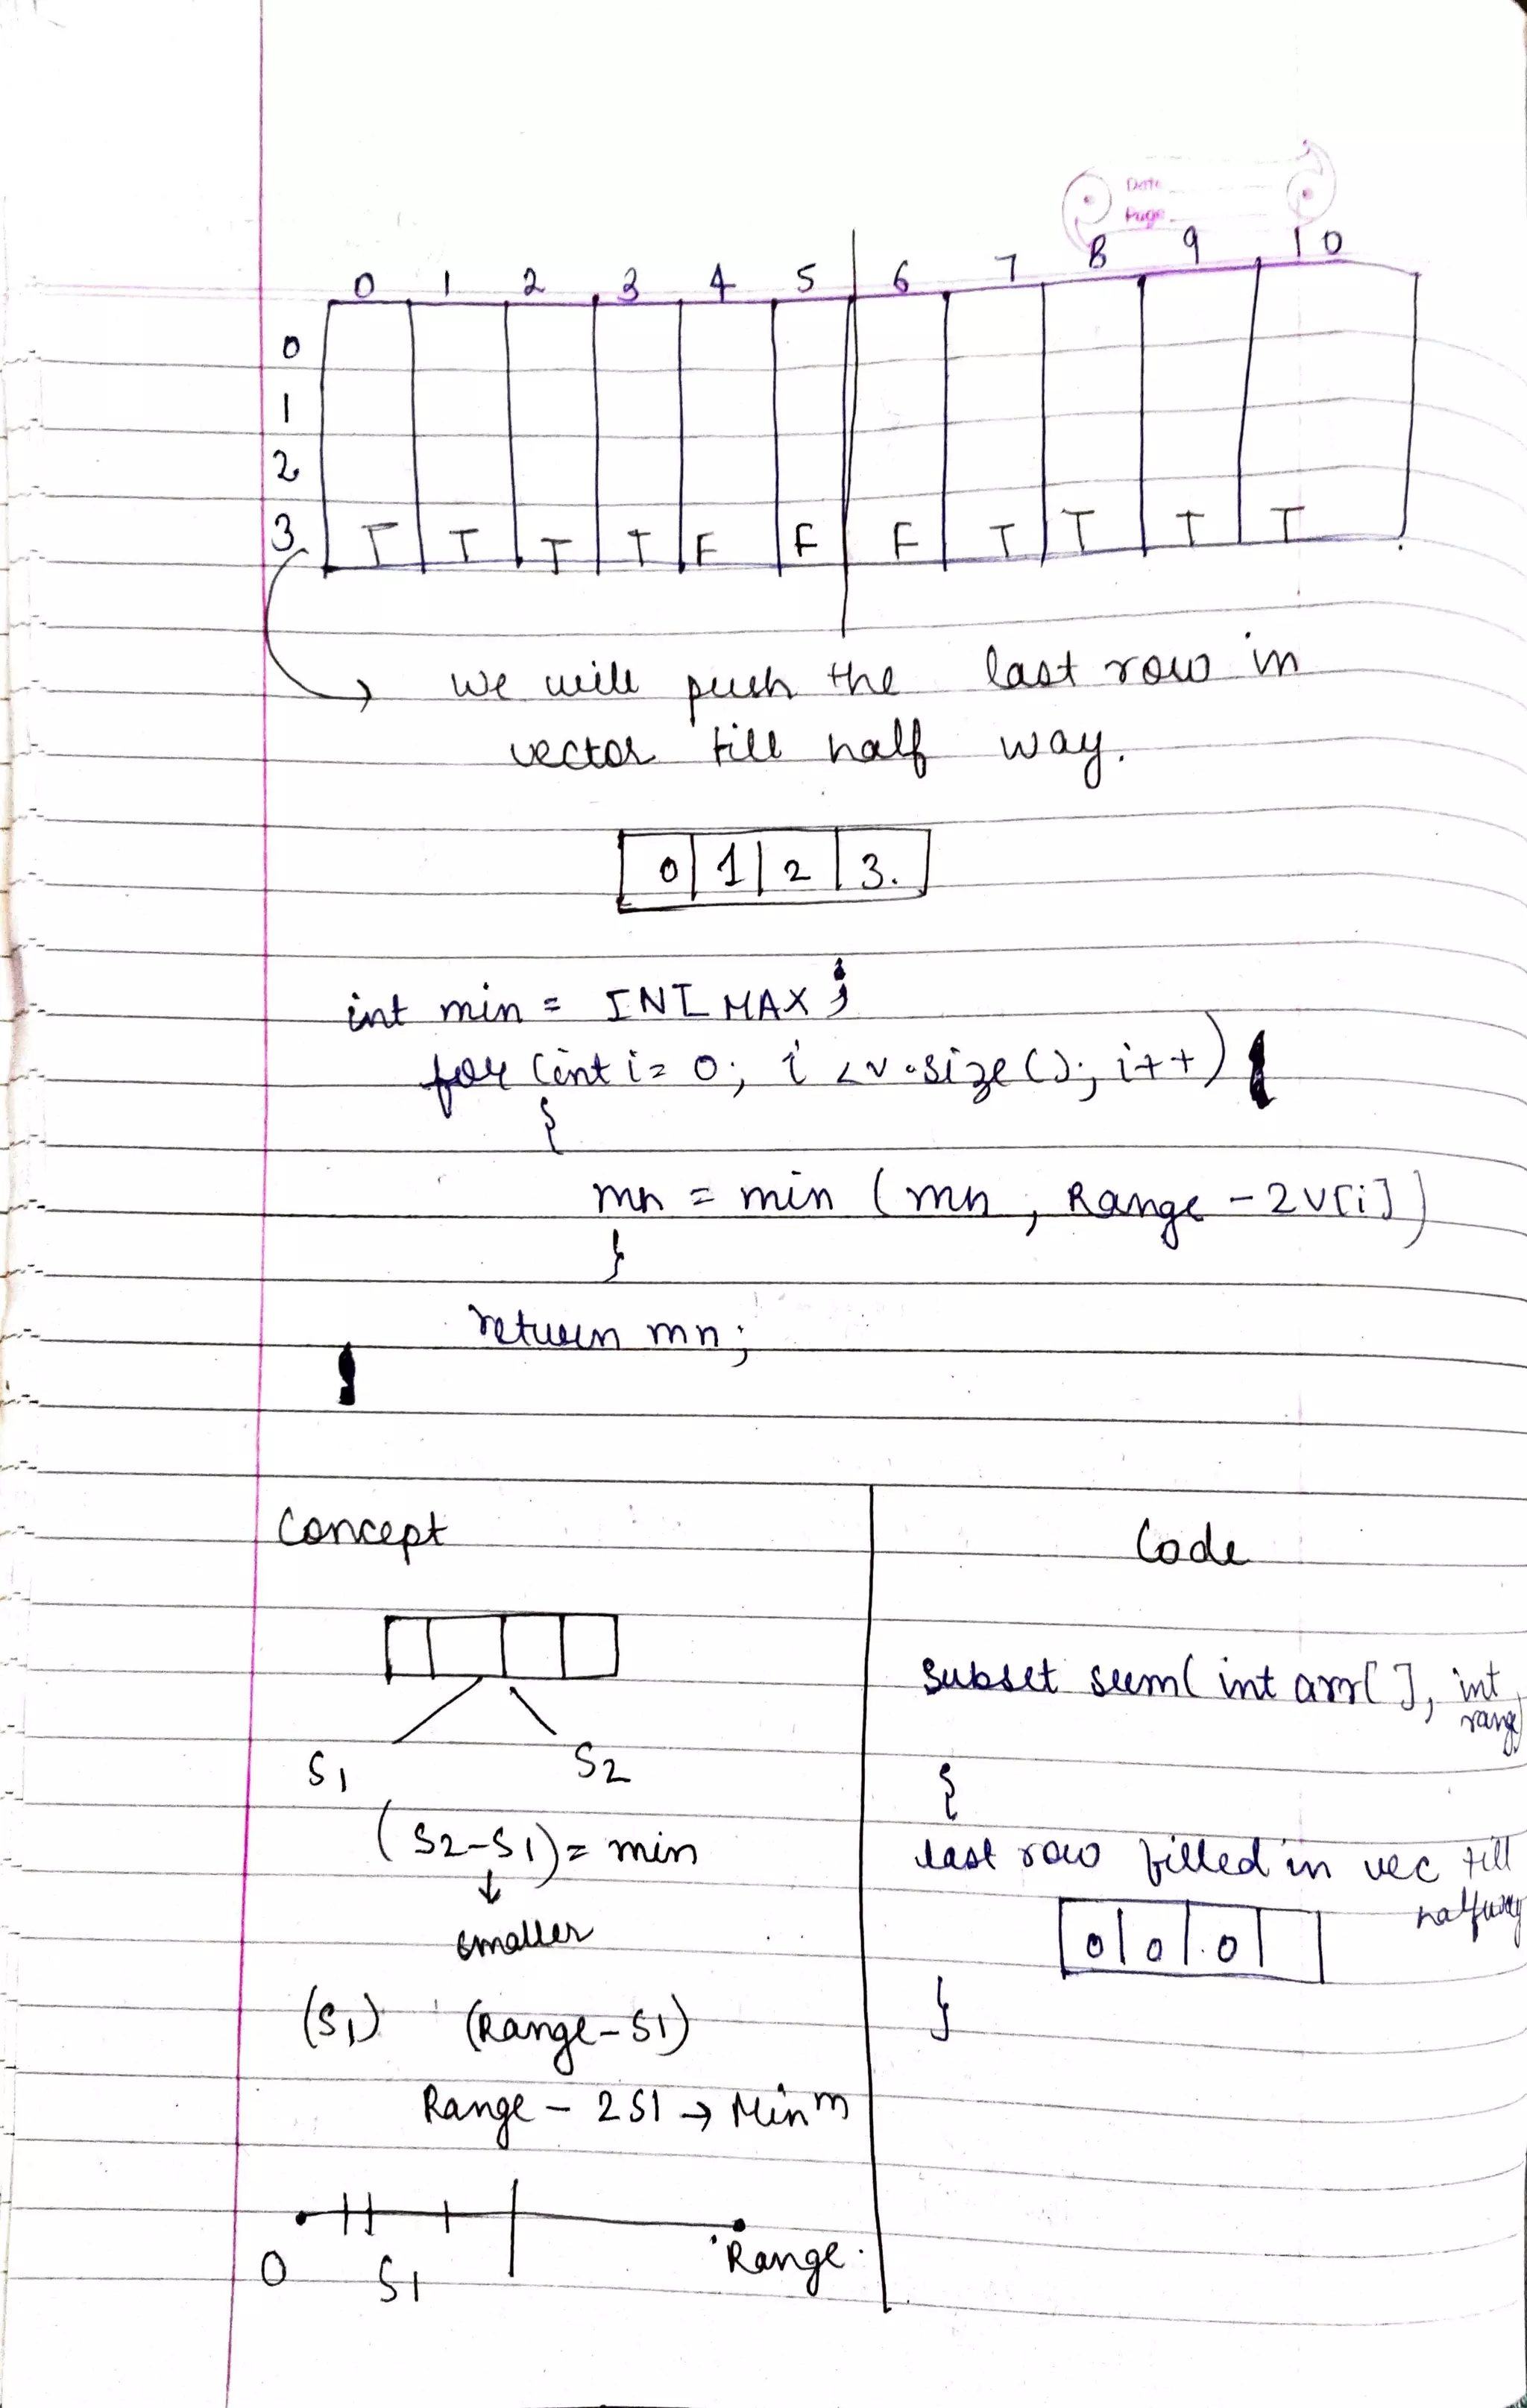 Date
Page
0 1 2 3 4 5 6 7 8 9 10
0
1
2
3 T T T T F F F T T T T
we will push the last row in
vector till half way.
0 1 2 3.
int min = INT MAX ;
for (int i = 0; i < v.size(); i++)
{
mn = min (mn, Range - 2v[i])
}
return mn;
Concept
S1 S2
(S2-S1) = min
↓
smaller
(S1) (Range - S1)
Range - 2S1 → Minm
0 S1 Range.
Code
Subset sum( int arr[ ], int
range)
{
last row filled in vec till
halfway
0 0 0
}